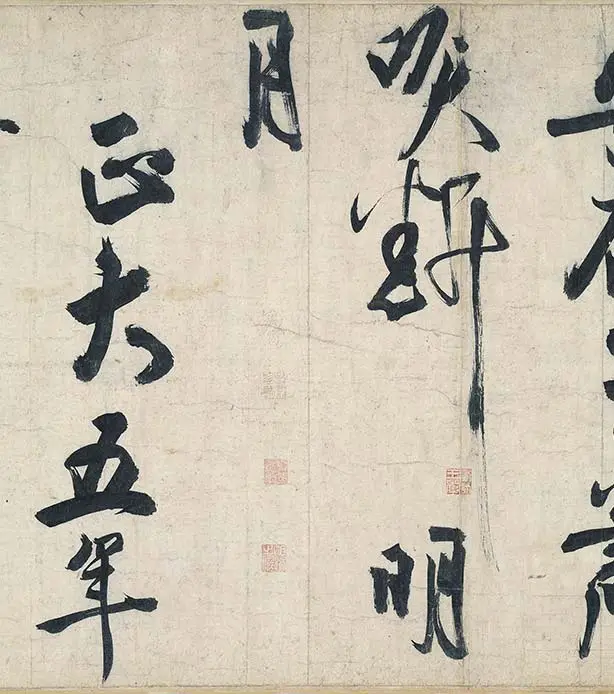 吹斷明
月
正大五年